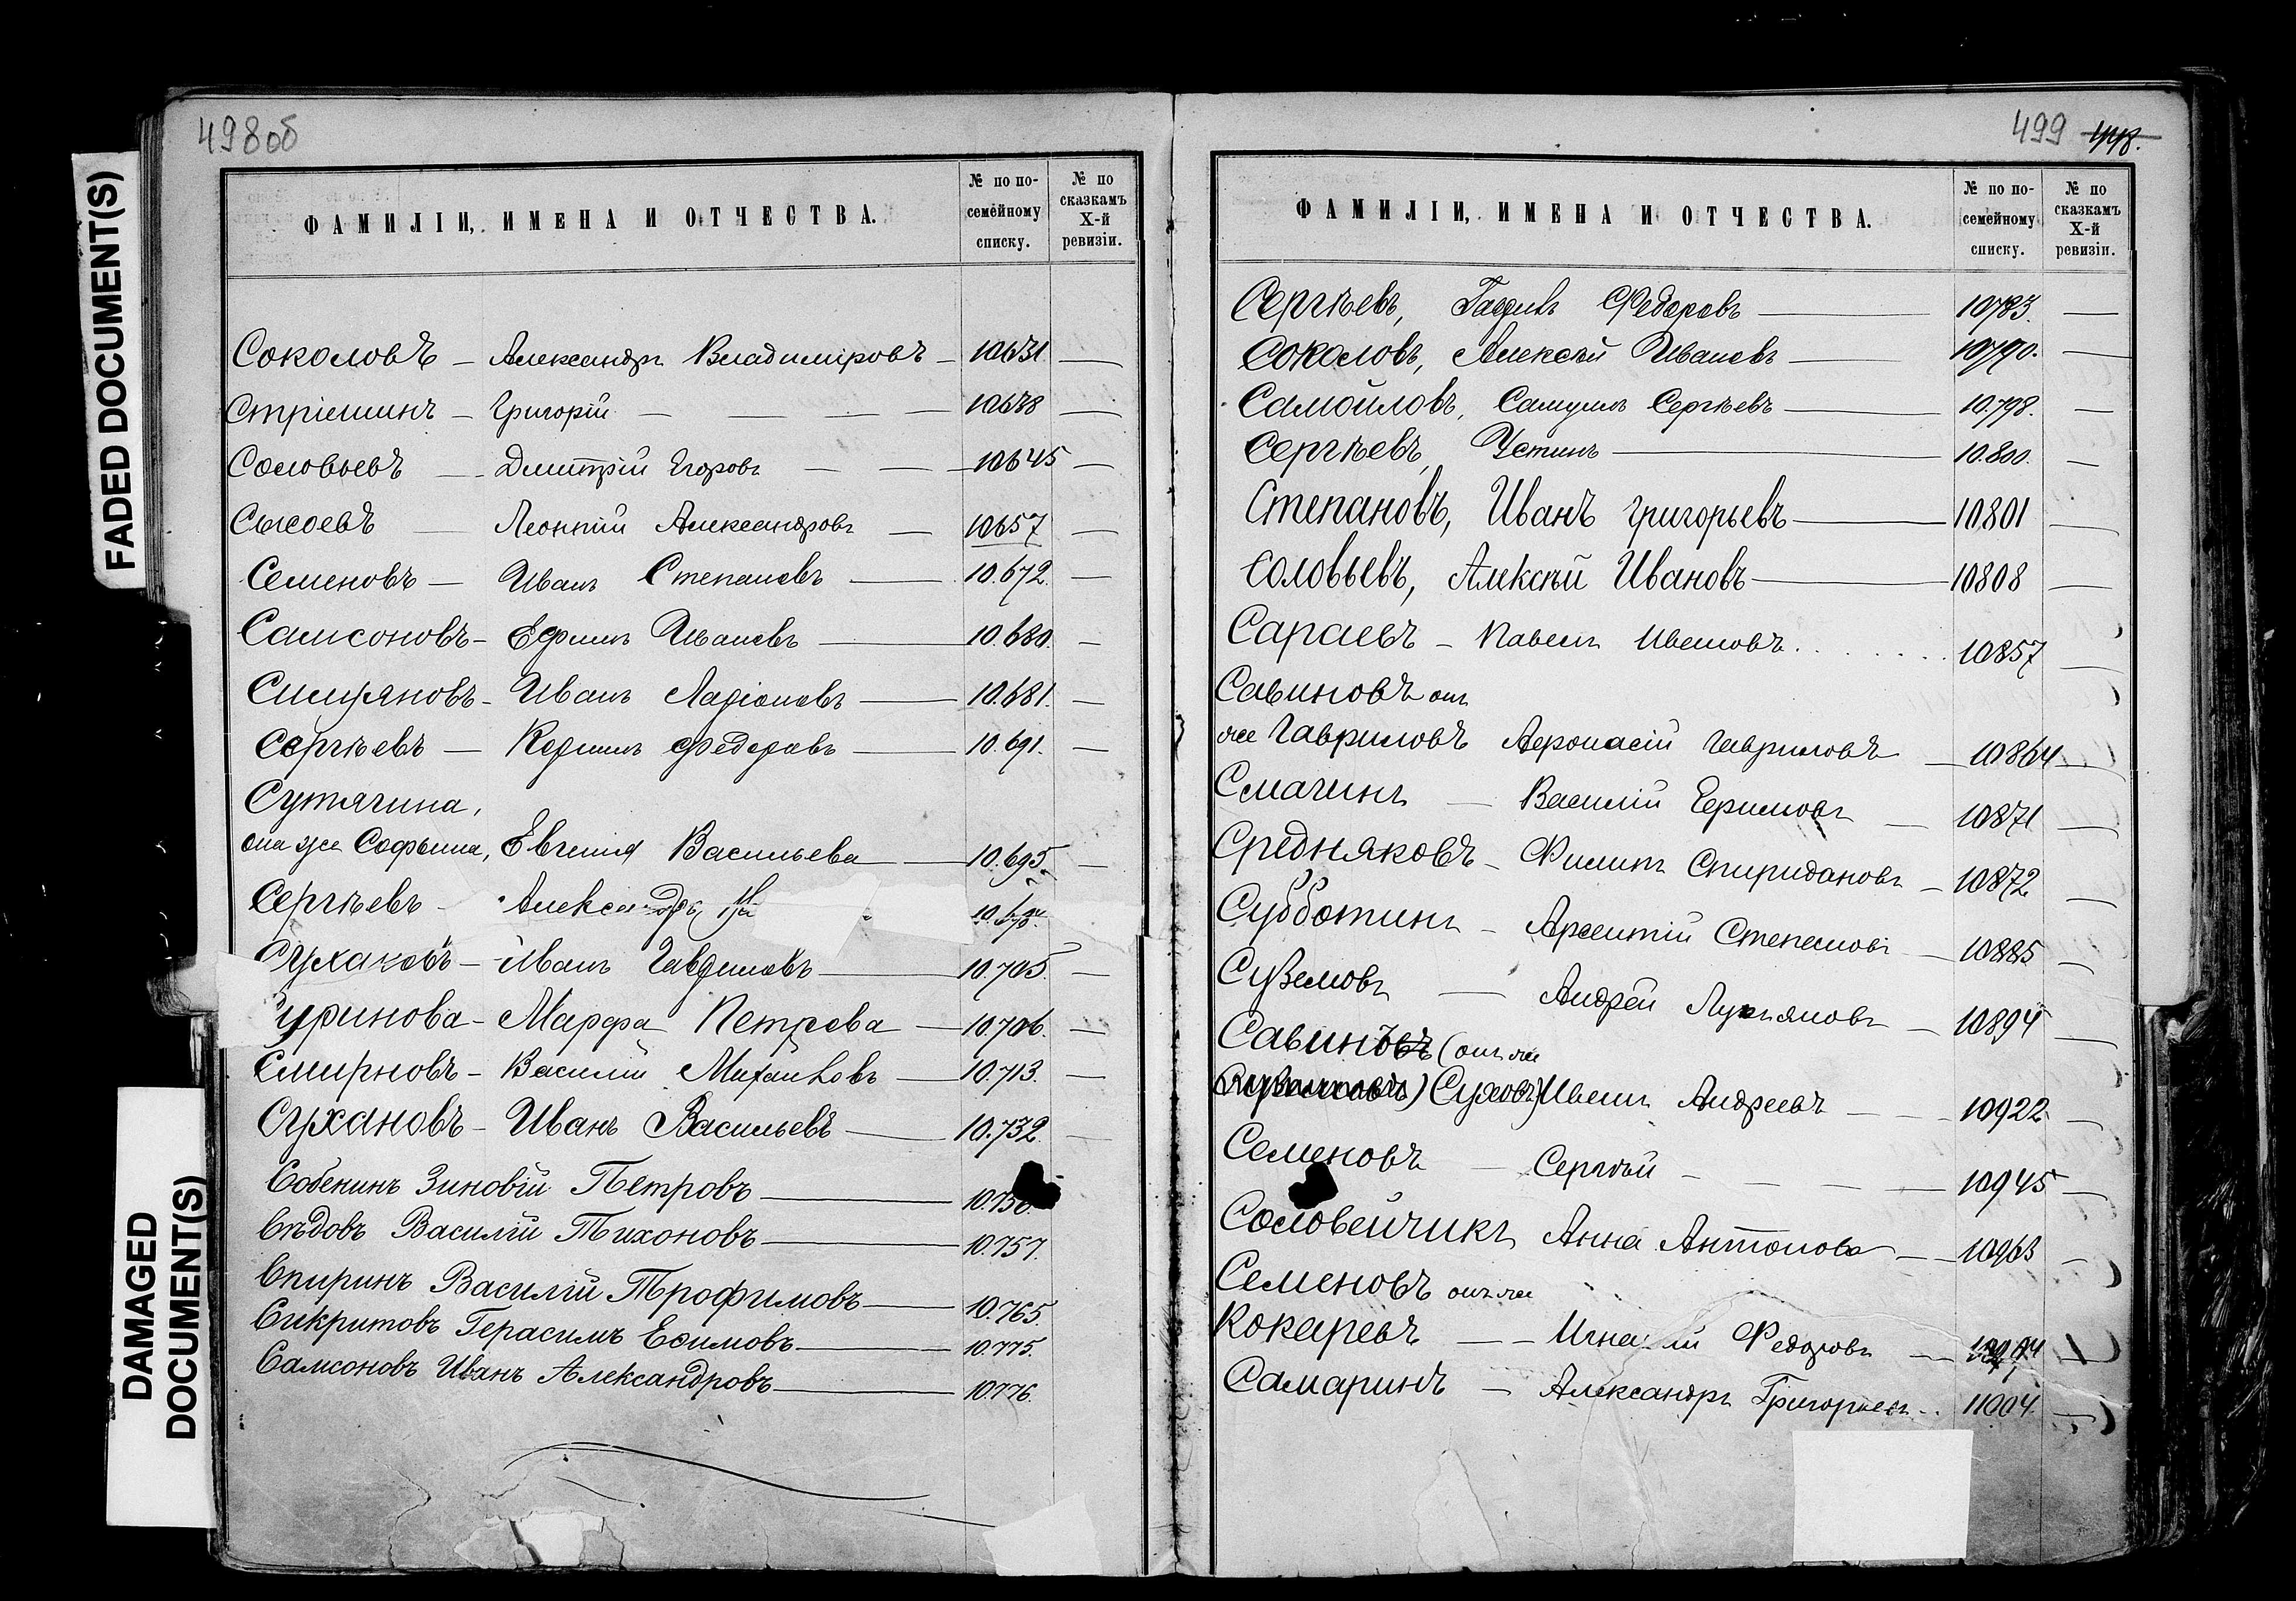 FADED DOCUMENT(S)
DAMAGED
DOCUMENT(S)
498об
ФАМИЛІИ, ИМЕНА И ОТЧЕСТВА.
№ по по-
семейному
списку.
№ по
сказкамъ
X-й
ревизіи.
Соколовъ — Александръ Владиміровъ — 10631 —
Стрieшинъ — Григорій — — — — 10638 —
Соловьевъ — Дмитрій Егоровъ — — — 10645 —
Сысоевъ — Леонтій Александровъ — 10657 —
Семеновъ — Иванъ Степановъ — 10.672. —
Самсоновъ — Ефимъ Ивановъ — 10.680. —
Симуяновъ — Иванъ Ларіоновъ — 10.681. —
Сергѣевъ — Федоровъ — 10.691. —
Сутягина,
она же Софьина, Евгенія Васильева — 10.695. —
Сергѣевъ — Александръ
Сухановъ — Иванъ Гавриловъ — 10.705. —
уринова — Марфа Петрова — 10.706. —
Смирновъ — Василій Михайловъ — 10.713. —
Сухановъ — Иванъ Васильевъ — 10.732. —
Собенинъ Зиновій Петровъ —
Сѣдовъ Василій Тихоновъ — 10.757.
Спиринъ Василій Трофимовъ — 10.765.
Сикритовъ Герасимъ Ефимовъ — 10.775.
Самсоновъ Иванъ Александровъ — 10776.
499 448.
ФАМИЛІИ, ИМЕНА И ОТЧЕСТВА.
№ по по-
семейному
списку.
№ по
сказкамъ
X-й
ревизіи.
Сергѣевъ, Федоровъ — 10783. —
Соколовъ, Алексѣй Ивановъ — 10790. —
Самойловъ, Самуилъ Сергѣевъ — 10.798. —
Сергѣевъ, Устинъ — 10.800. —
Степановъ, Иванъ Григорьевъ — 10801 —
Соловьевъ, Алексѣй Ивановъ — 10808 —
Сараевъ — Павелъ Ивановъ . . . . . 10857 —
Савиновъ онъ
же Гавриловъ Афонасій Гавриловъ — 10864 —
Смагинъ — Василій Ефимовъ — 10871 —
Средняковъ — Филипъ Спиридановъ — 10872 —
Субботинъ — Арсентій Степановъ — 10885 —
Суземовъ — Андрей Лукьяновъ — 10894 —
Савиновъ (онъ же
Суховъ) Иванъ Андреевъ — — 10922 —
Семеновъ — Сергѣй — — — — 10945 —
Соловейчикъ Анна Антонова — 10963 —
Семеновъ онъ же
Кокаревъ — — Игнатій Федоровъ —
Самаринъ — Александръ Григорьевъ . . 11004. —